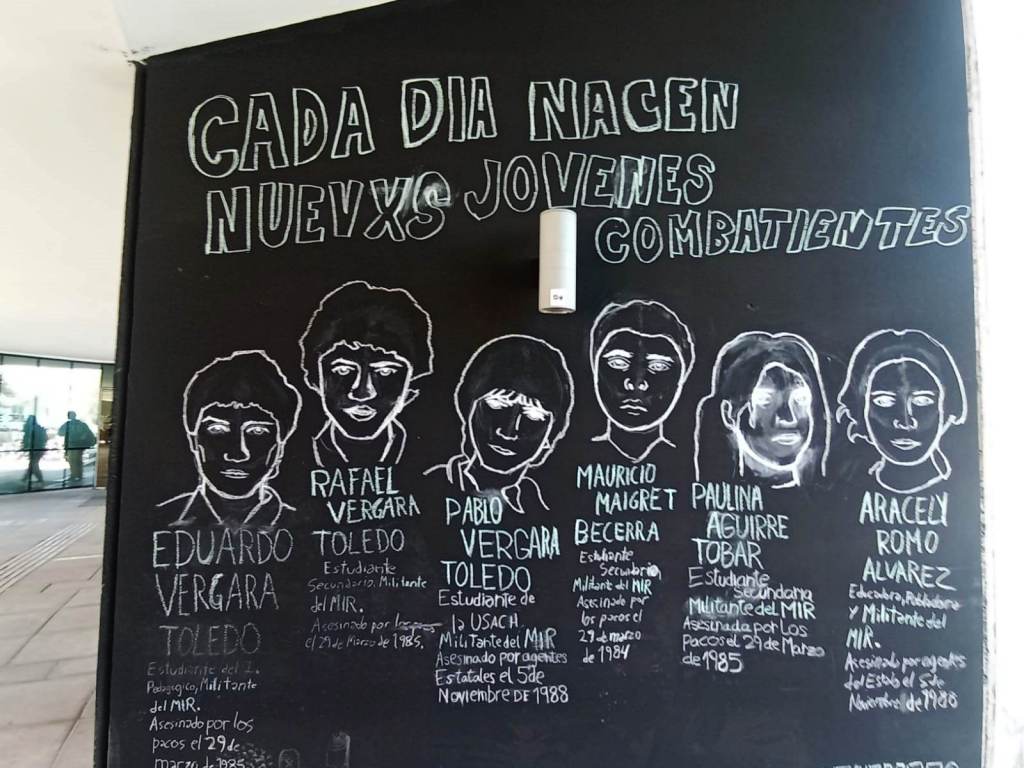 CADA DIA NACEN
NUEVXS JOVENES
COMBATIENTES
EDUARDO
VERGARA
TOLEDO
Estudiante del I.
Pedagogico, Militante
del MIR.
Asesinado por los
pacos el 29 de
marzo de 1985
RAFAEL
VERGARA
TOLEDO
Estudiante
Secundario, Militante
del MIR.
Asesinado por los
el 29 de Marzo de 1985.
PABLO
VERGARA
TOLEDO
Estudiante de
la USACH
Militante del MIR
Asesinado por agentes
Estatales el 5 de
Noviembre DE 1988
MAURICIO
MAIGRET
BECERRA
Estudiante
Secundario,
Militante del MIR
Asesinado por
los pacos el
29 de marzo
de 1984
PAULINA
AGUIRRE
TOBAR
Estudiante
Secundaria
Militante del MIR
Asesinada por Los
Pacos el 29 de Marzo
de 1985
ARACELY
ROMO
ALVAREZ
Educadora, Pobladora
y Militante del
MIR.
Asesinada por agentes
del Estado el 5 de
Noviembre de 1988